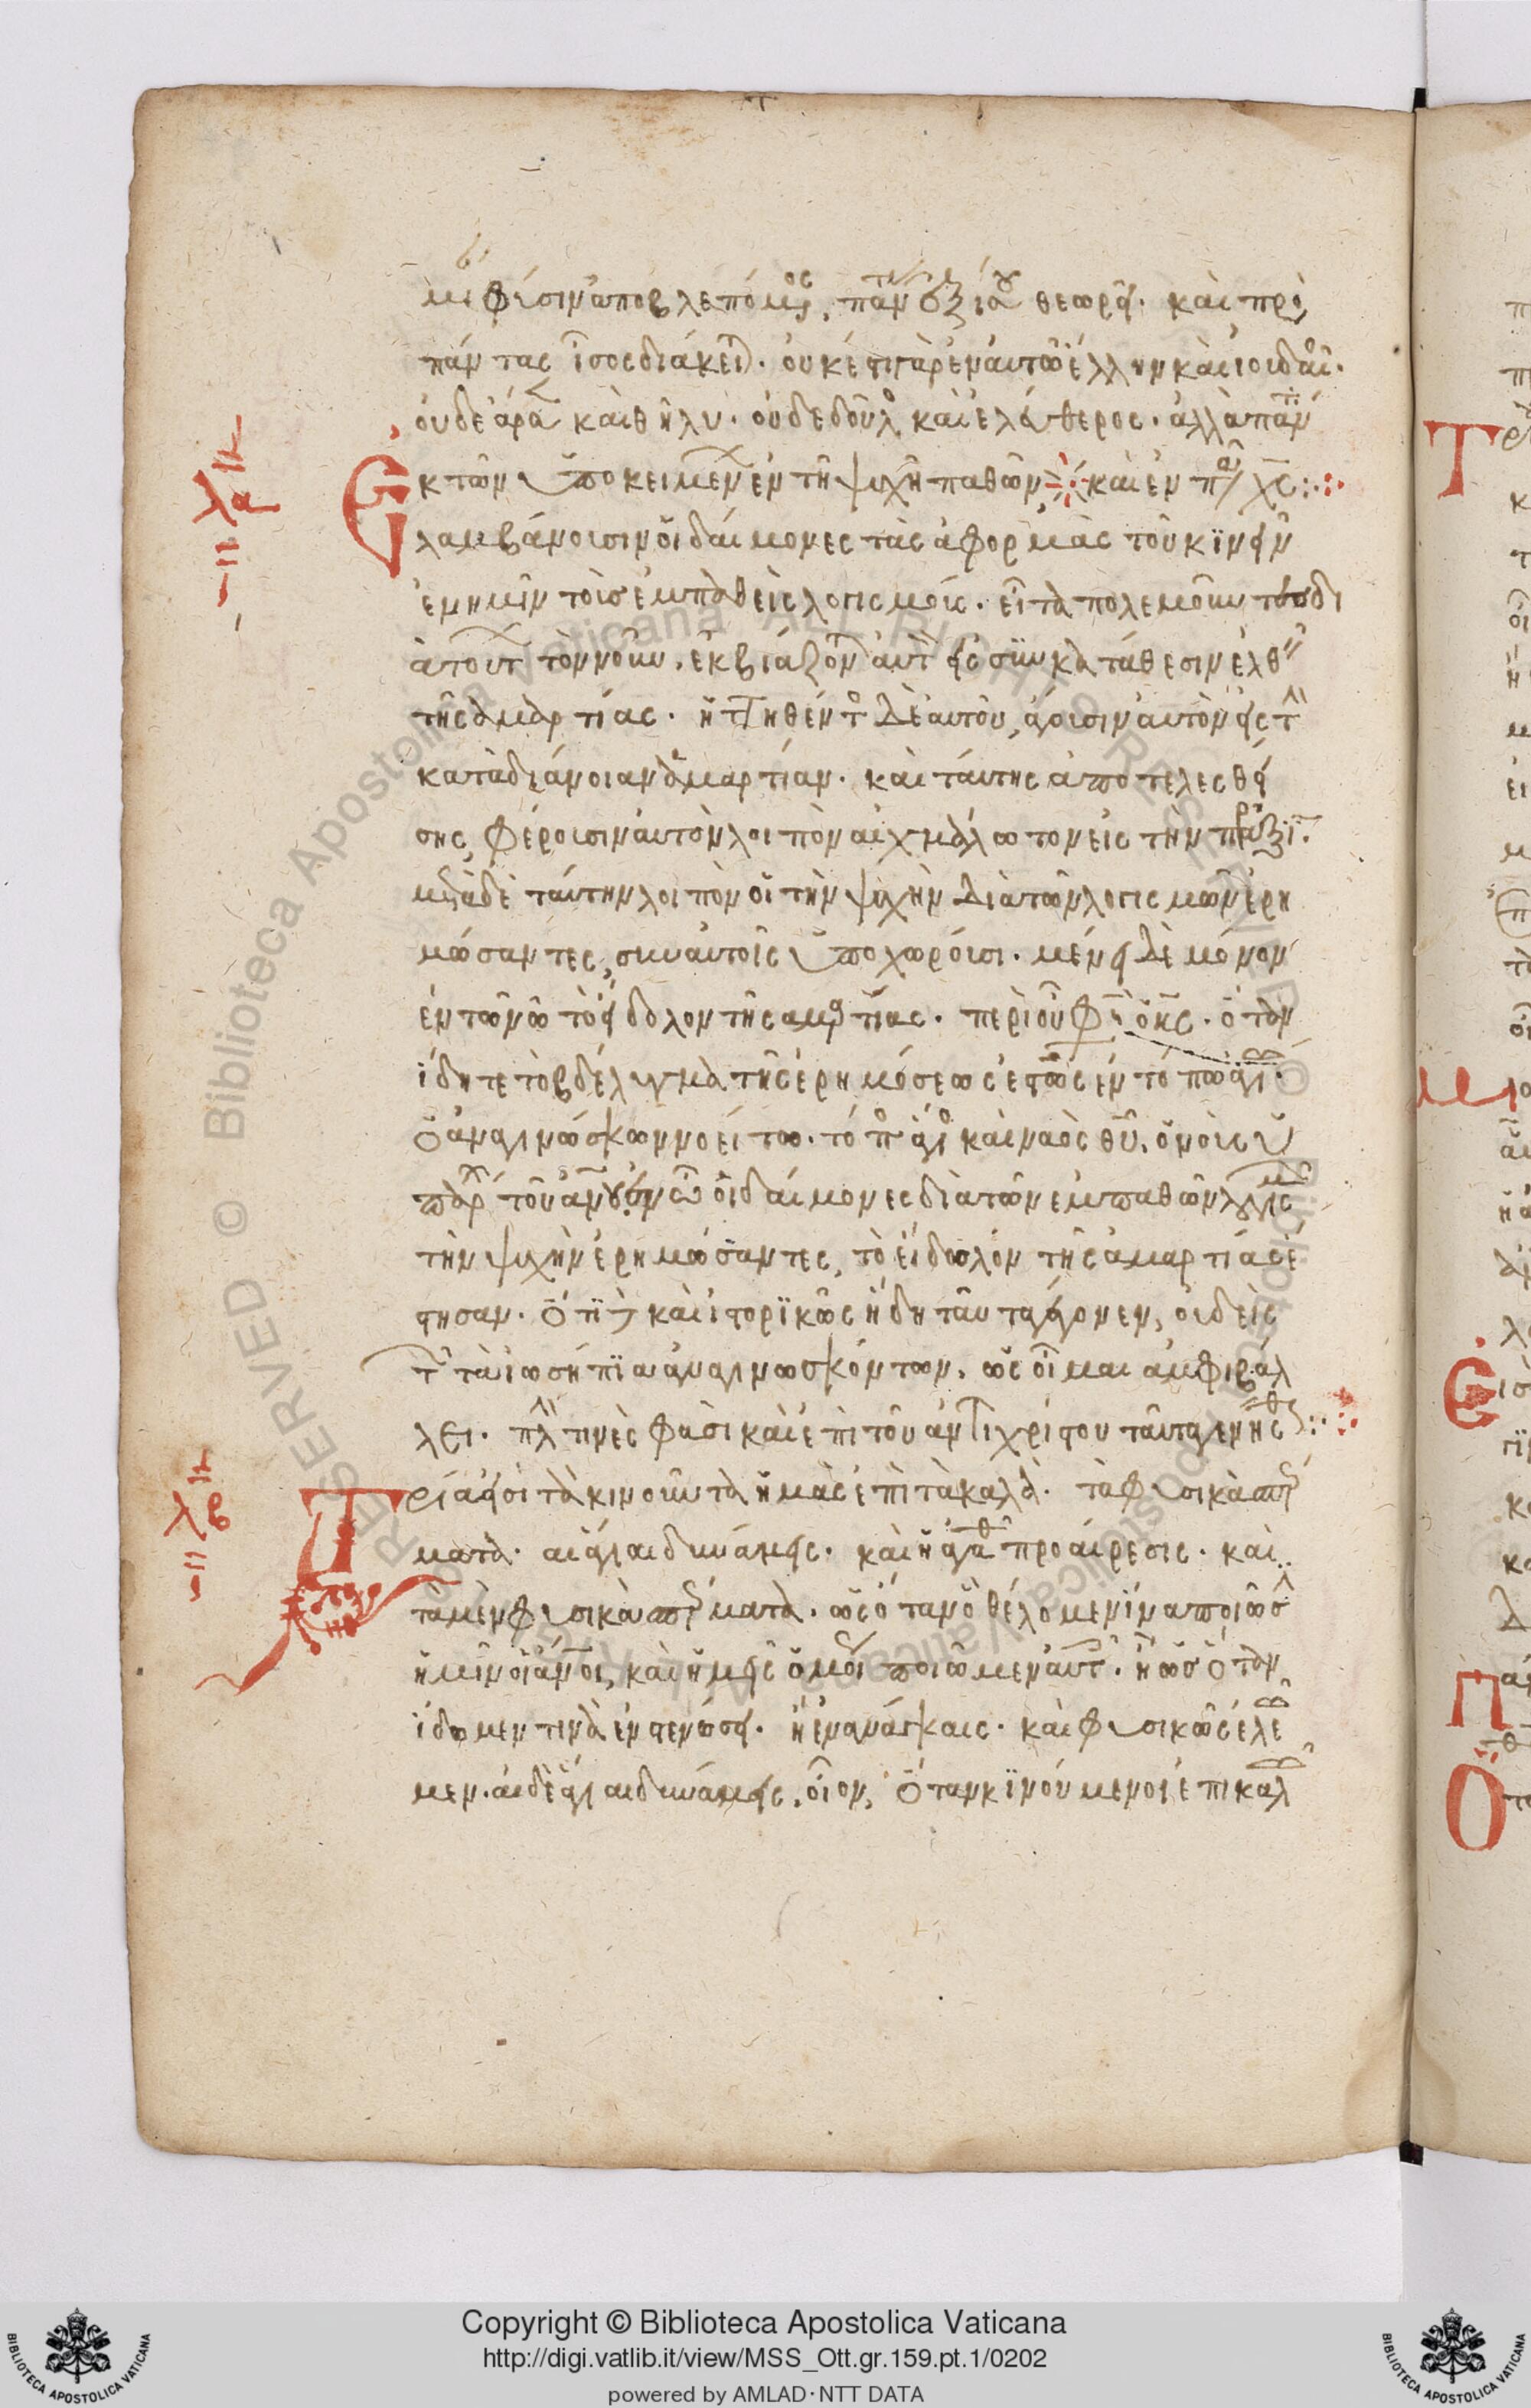 μι φύσιν ἀποβλεπόμενος, πάντας ἐξίσου θεωρεῖ. καὶ πρὸς
πάντας ἴσος διάκειται. οὐκ ἔστι γὰρ ἐν αὐτῶ ἕλλην καὶ ἰουδαῖος.
οὐδὲ ἄρσεν καὶ θῆλυ. οὐδὲ δοῦλος καὶ ἐλεύθερος. ἀλλὰ πάντα
καὶ ἐν πᾶσι χς
λα Ἐκ τῶν ὑποκειμένων ἐν τῆ ψυχῆ παθῶν
λαμβάνουσιν οἱ δαίμονες τὰς ἀφορμὰς τοῦ κινεῖν
ἐν ἡμῖν τοὺς ἐμπαθεῖς λογισμούς. εἶτα πολεμοῦν
τὸν νοῦν. ἐκβιάζονται αὐτὸν εἰς συνκατάθεσιν ἐλθεῖν
τῆς ἁμαρτίας. ἡττηθέντος δὲ αὐτοῦ, ἄγουσιν αὐτὸν εἰς τὴν
κατὰ διάνοιαν ἁμαρτίαν. καὶ ταύτης ἀποτελεσθεί
σης, φέρουσιν αὐτὸν λοιπὸν αἰχμάλωτον εἰς τὴν πρᾶξιν.
μετὰ δὲ ταύτην λοιπὸν οἱ τὴν ψυχὴν διὰ τῶν λογισμῶν ἐρη
μώσαντες, σὺν αὐτοῖς ὑποχωροῦσι. μένει δὲ μόνον
ἐν τῶ νῶ τὸ εἴδωλον τῆς ἁμαρτίας. περὶ οὗ φησιν ὁ κς. ὅταν
ἴδητε τὸ βδέλυγμα τῆς ἐρημώσεως ἑστὼς ἐν τόπω ἁγίω.
ὁ ἀναγινώσκων νοείτω. τόπος ἅγιος καὶ ναὸς θυ, ὁ νοῦς ὑ
πάρχει τοῦ ανου. ἐν ὧ οἱ δαίμονες διὰ τῶν ἐμπαθῶν λογισμῶν
τὴν ψυχὴν ἐρημώσαντες, τὸ εἴδωλον τῆς ἁμαρτίας ἔ
στησαν. ὅτι δὲ καὶ ἱστορικῶς ἤδη ταῦτα γέγονεν, οὐδεὶς
τῶν τὰ ἰωσήπου ἀναγινωσκόντων, ὡς οἶμαι ἀμφιβάλ
λει. πλὴν τινὲς φασὶ καὶ ἐπὶ τοῦ ἀντιχρίστου ταῦτα γενήσεσθαι
λβ Τρία εἰσὶ τὰ κινοῦντα ἡμᾶς ἐπὶ τὰ καλά. τὰ φυσικὰ σπέρ
ματα. αἱ ἅγιαι δυνάμεις. καὶ ἡ ἀγαθὴ προαίρεσις. καὶ
τὰ μὲν φυσικὰ σπέρματα. ὡς ὅταν ὃ θέλομεν ἵνα ποιῶσιν
ἡμῖν οἱ ἄνοι, καὶ ἡμεῖς ὁμοίως ποιῶμεν αὐτοῖς. ἢ ὡς ὅταν
ἴδωμεν τινὰ ἐν στενώσει. ἢ ἐν ἀνάγκαις. καὶ φυσικῶς ἐλεῶ
μεν. αἱ δὲ ἅγιαι δυνάμεις, οἷον, ὅταν κινούμενοι ἐπὶ καλῶ
Copyright © Biblioteca Apostolica Vaticana
http://digi.vatlib.it/view/MSS_Ott.gr.159.pt.1/0202
powered by AMLAD·NTT DATA